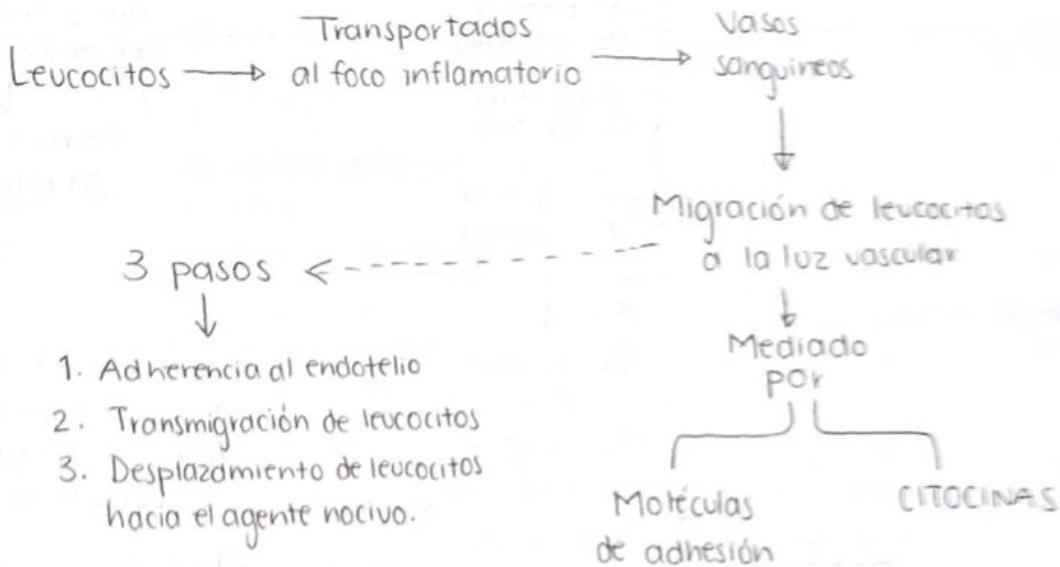 Leucocitos
Transportados
al foco inflamatorio
Vasos
sanguíneos
Migración de leucocitos
a la luz vascular
3 pasos
1. Adherencia al endotelio
2. Transmigración de leucocitos
3. Desplazamiento de leucocitos
hacia el agente nocivo.
Mediado
por
Moléculas
de adhesión
CITOCINAS